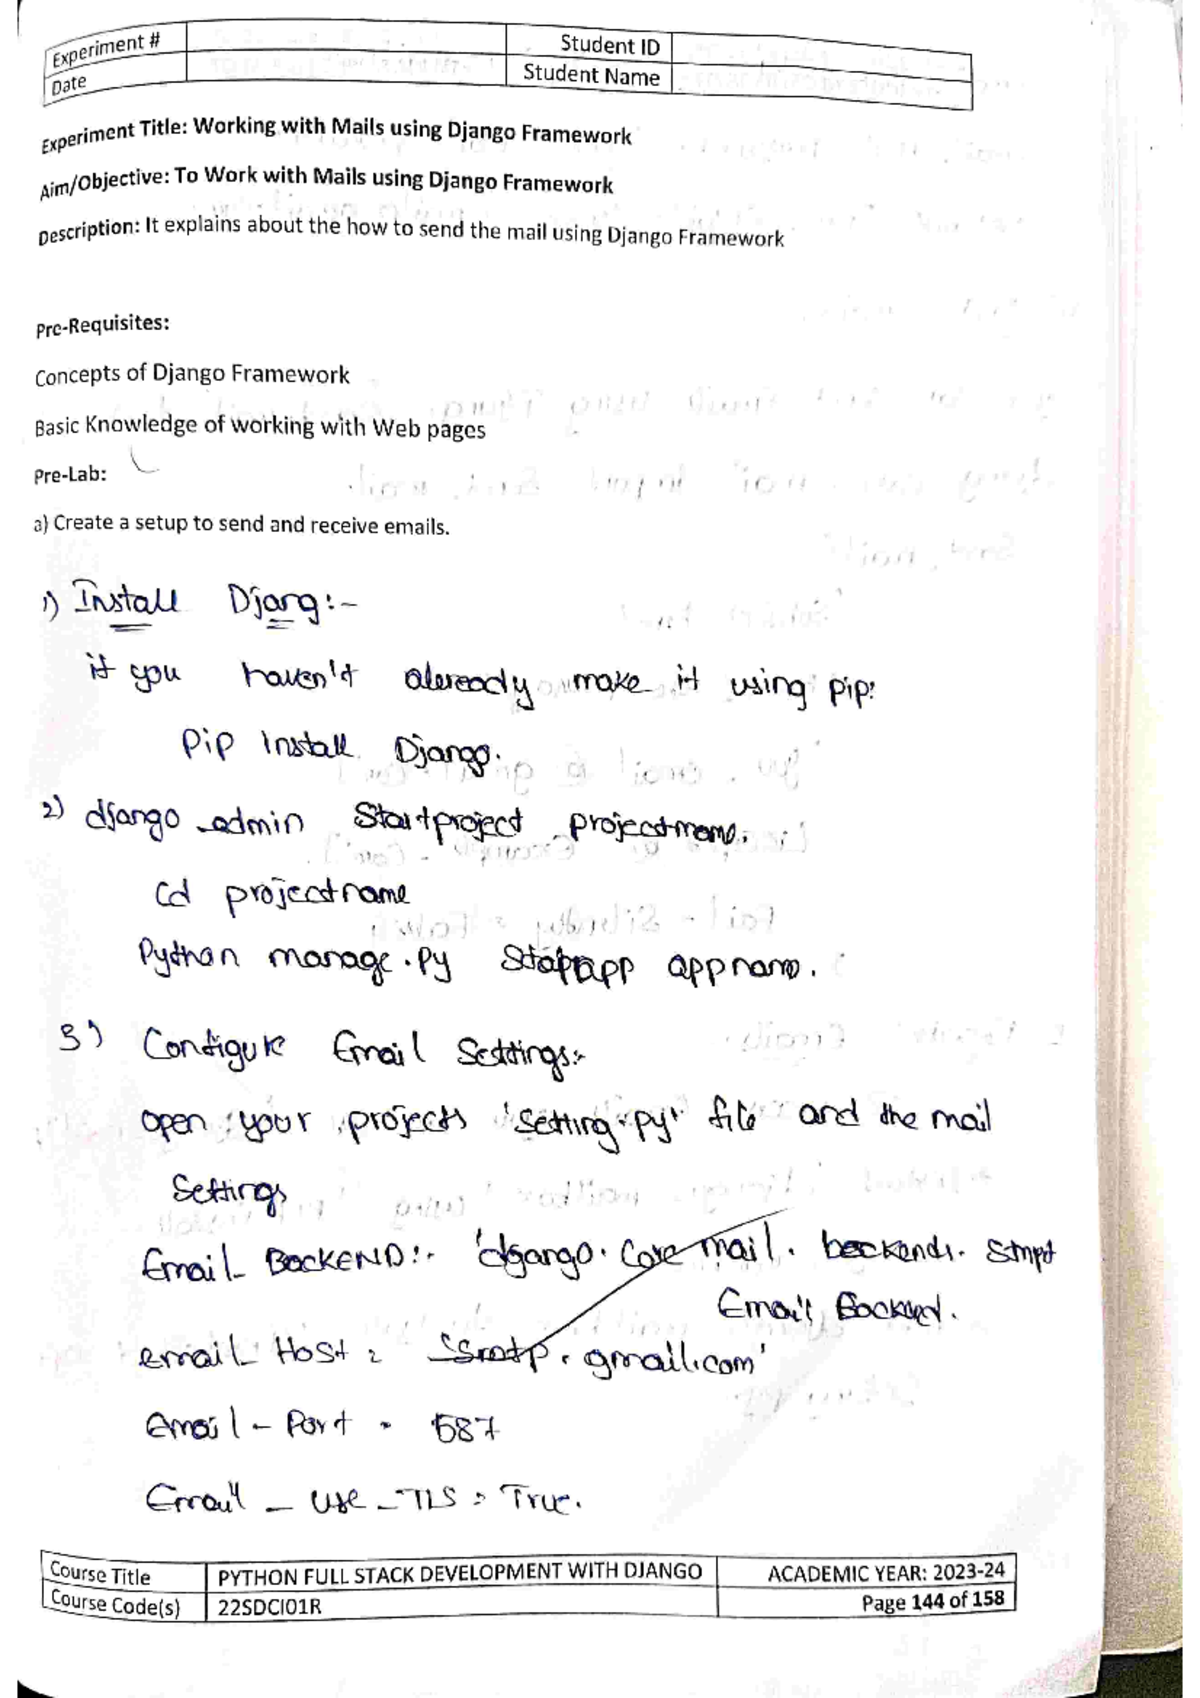 Experiment #
Student ID
Date
Student Name
Experiment Title: Working with Mails using Django Framework
Aim/Objective: To Work with Mails using Django Framework
Description: It explains about the how to send the mail using Django Framework
Pre-Requisites:
Concepts of Django Framework
Basic Knowledge of working with Web pages
Pre-Lab:
a) Create a setup to send and receive emails.
1) Install Djang:-
if you haven't aleready make it using pip:
Pip Install Django.
2) django_admin Startproject projectname.
Cd projectname
Python manage.py Startapp appname.
3) Configure Email Settings:-
open your projects 'setting.py' file and the mail
Settings
Email_ BACKEND:- 'django. Core mail. backends. Smpt
Email Backend.
email_ Host = 'Ssmtp. gmail.com'
Email - Port = 587
Email _ Use _ TLS = True.
Course Title
PYTHON FULL STACK DEVELOPMENT WITH DJANGO
ACADEMIC YEAR: 2023-24
Course Code(s)
22SDCI01R
Page 144 of 158